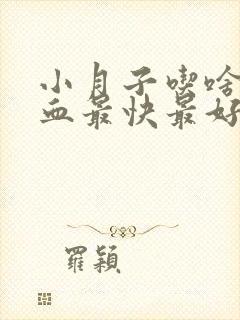 小月子喫啥
血最快最好
羅穎